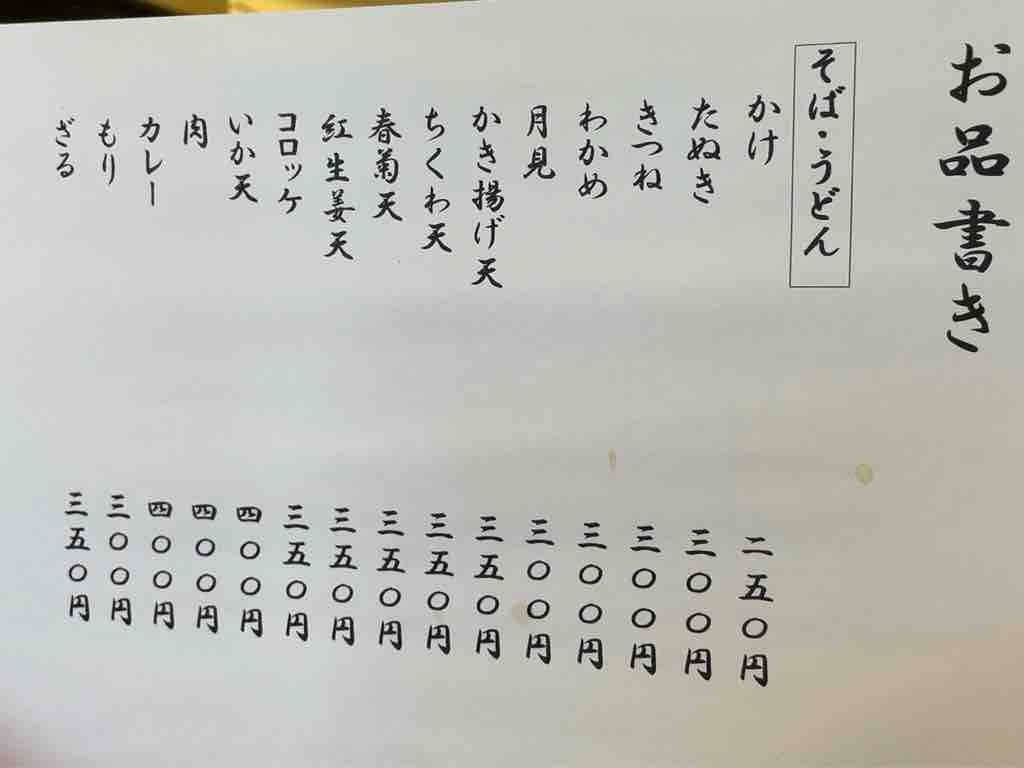 お品書き
そば・うどん
かけ 二五〇円
たぬき 三〇〇円
きつね 三〇〇円
わかめ 三〇〇円
月見 三〇〇円
かき揚げ天 三五〇円
ちくわ天 三五〇円
春菊天 三五〇円
紅生姜天 三五〇円
コロッケ 三五〇円
いか天 四〇〇円
肉 四〇〇円
カレー 四〇〇円
もり 三〇〇円
ざる 三五〇円